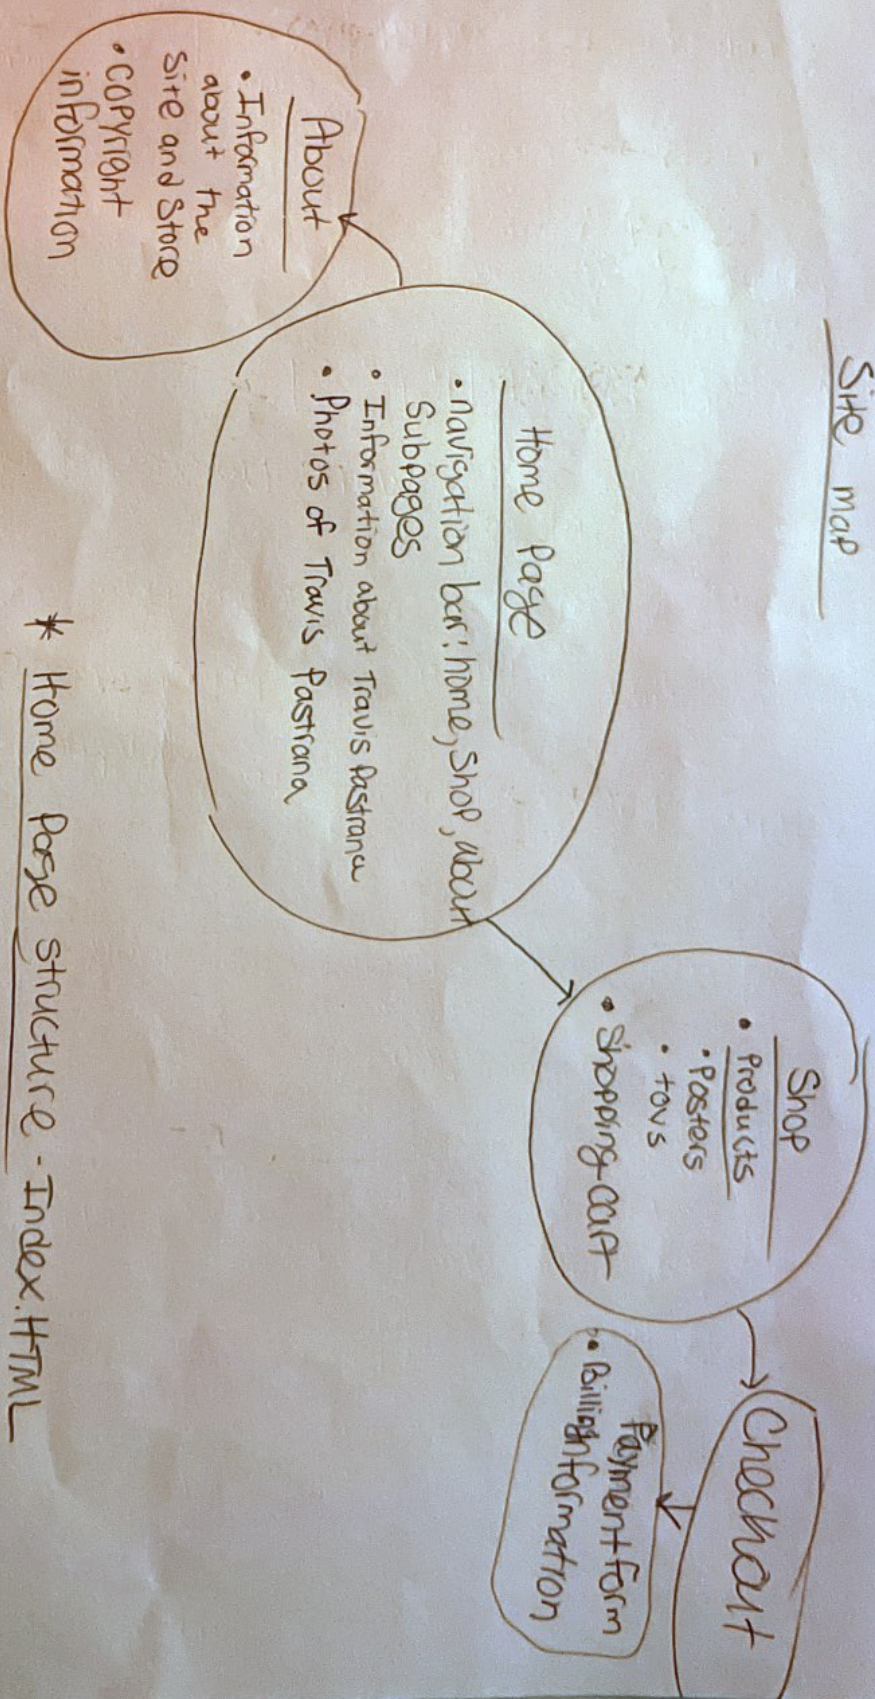 Site map
About
• Information
about the
Site and Store
• Copyright
information
Home Page
• navigation bar: home, Shop, about
Subpages
• Information about Travis Pastrana
• Photos of Travis Pastrana
Shop
• Products
• Posters
• toys
• Shopping cart
Checkout
Payment form
• Billing information
* Home Page structure - Index.HTML